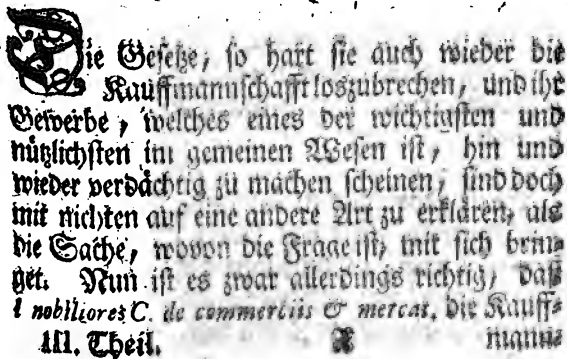 Die Gesetze, so hart sie auch wieder die
Kauffmannschafft loszubrechen, und ihr
Gewerbe, welches eines der wichtigsten und
nützlichsten im gemeinen Wesen ist, hin und
wieder verdächtig zu machen scheinen, sind doch
mit nichten auf eine andere Art zu erklären, als
die Sache, wovon die Frage ist, mit sich brin-
get. Nun ist es zwar allerdings richtig, daß
l nobiliores C. de commerciis & mercat. die Kauff-
III. Theil. A mann-